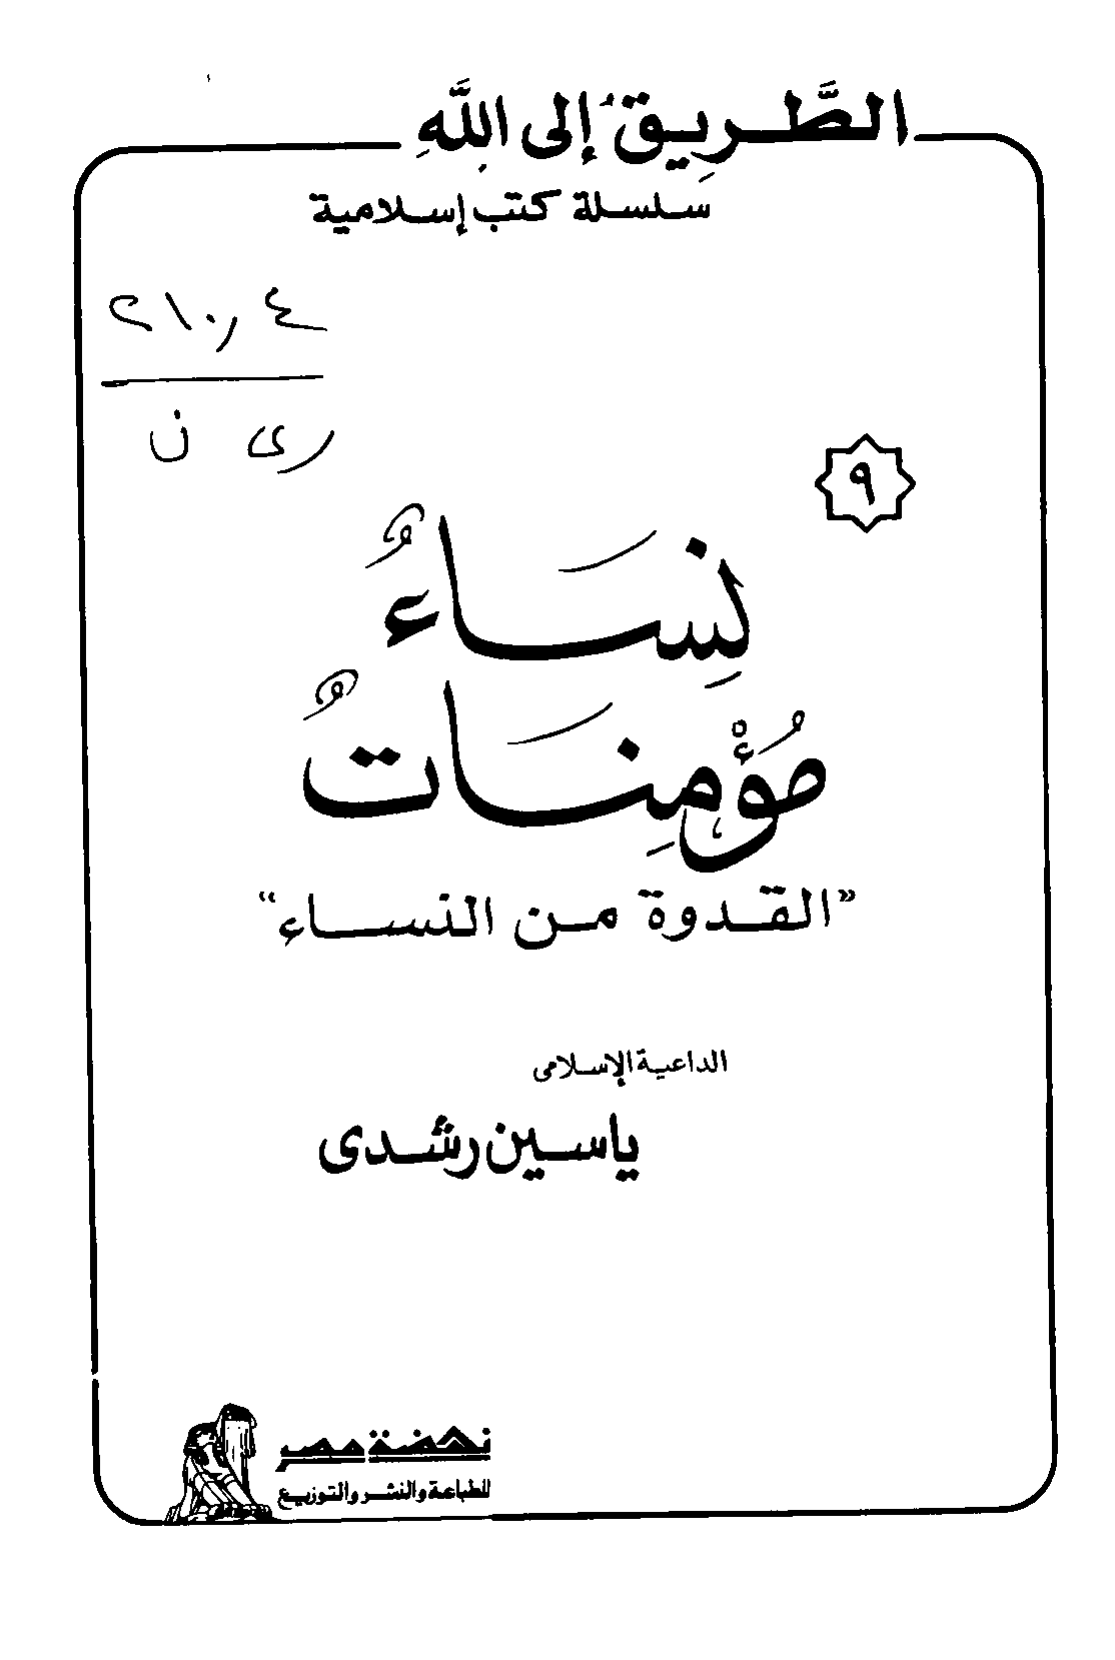 الطَّرِيقُ إلى اللَّهِ
سلسلة كتب إسلامية
٢١٠,٤
رى ن
٩
نِسَاءٌ
مُؤْمِنَاتٌ
"القدوة من النساء"
الداعية الإسلامى
ياسين رشدى
نهضة مصر
للطباعة والنشر والتوزيع